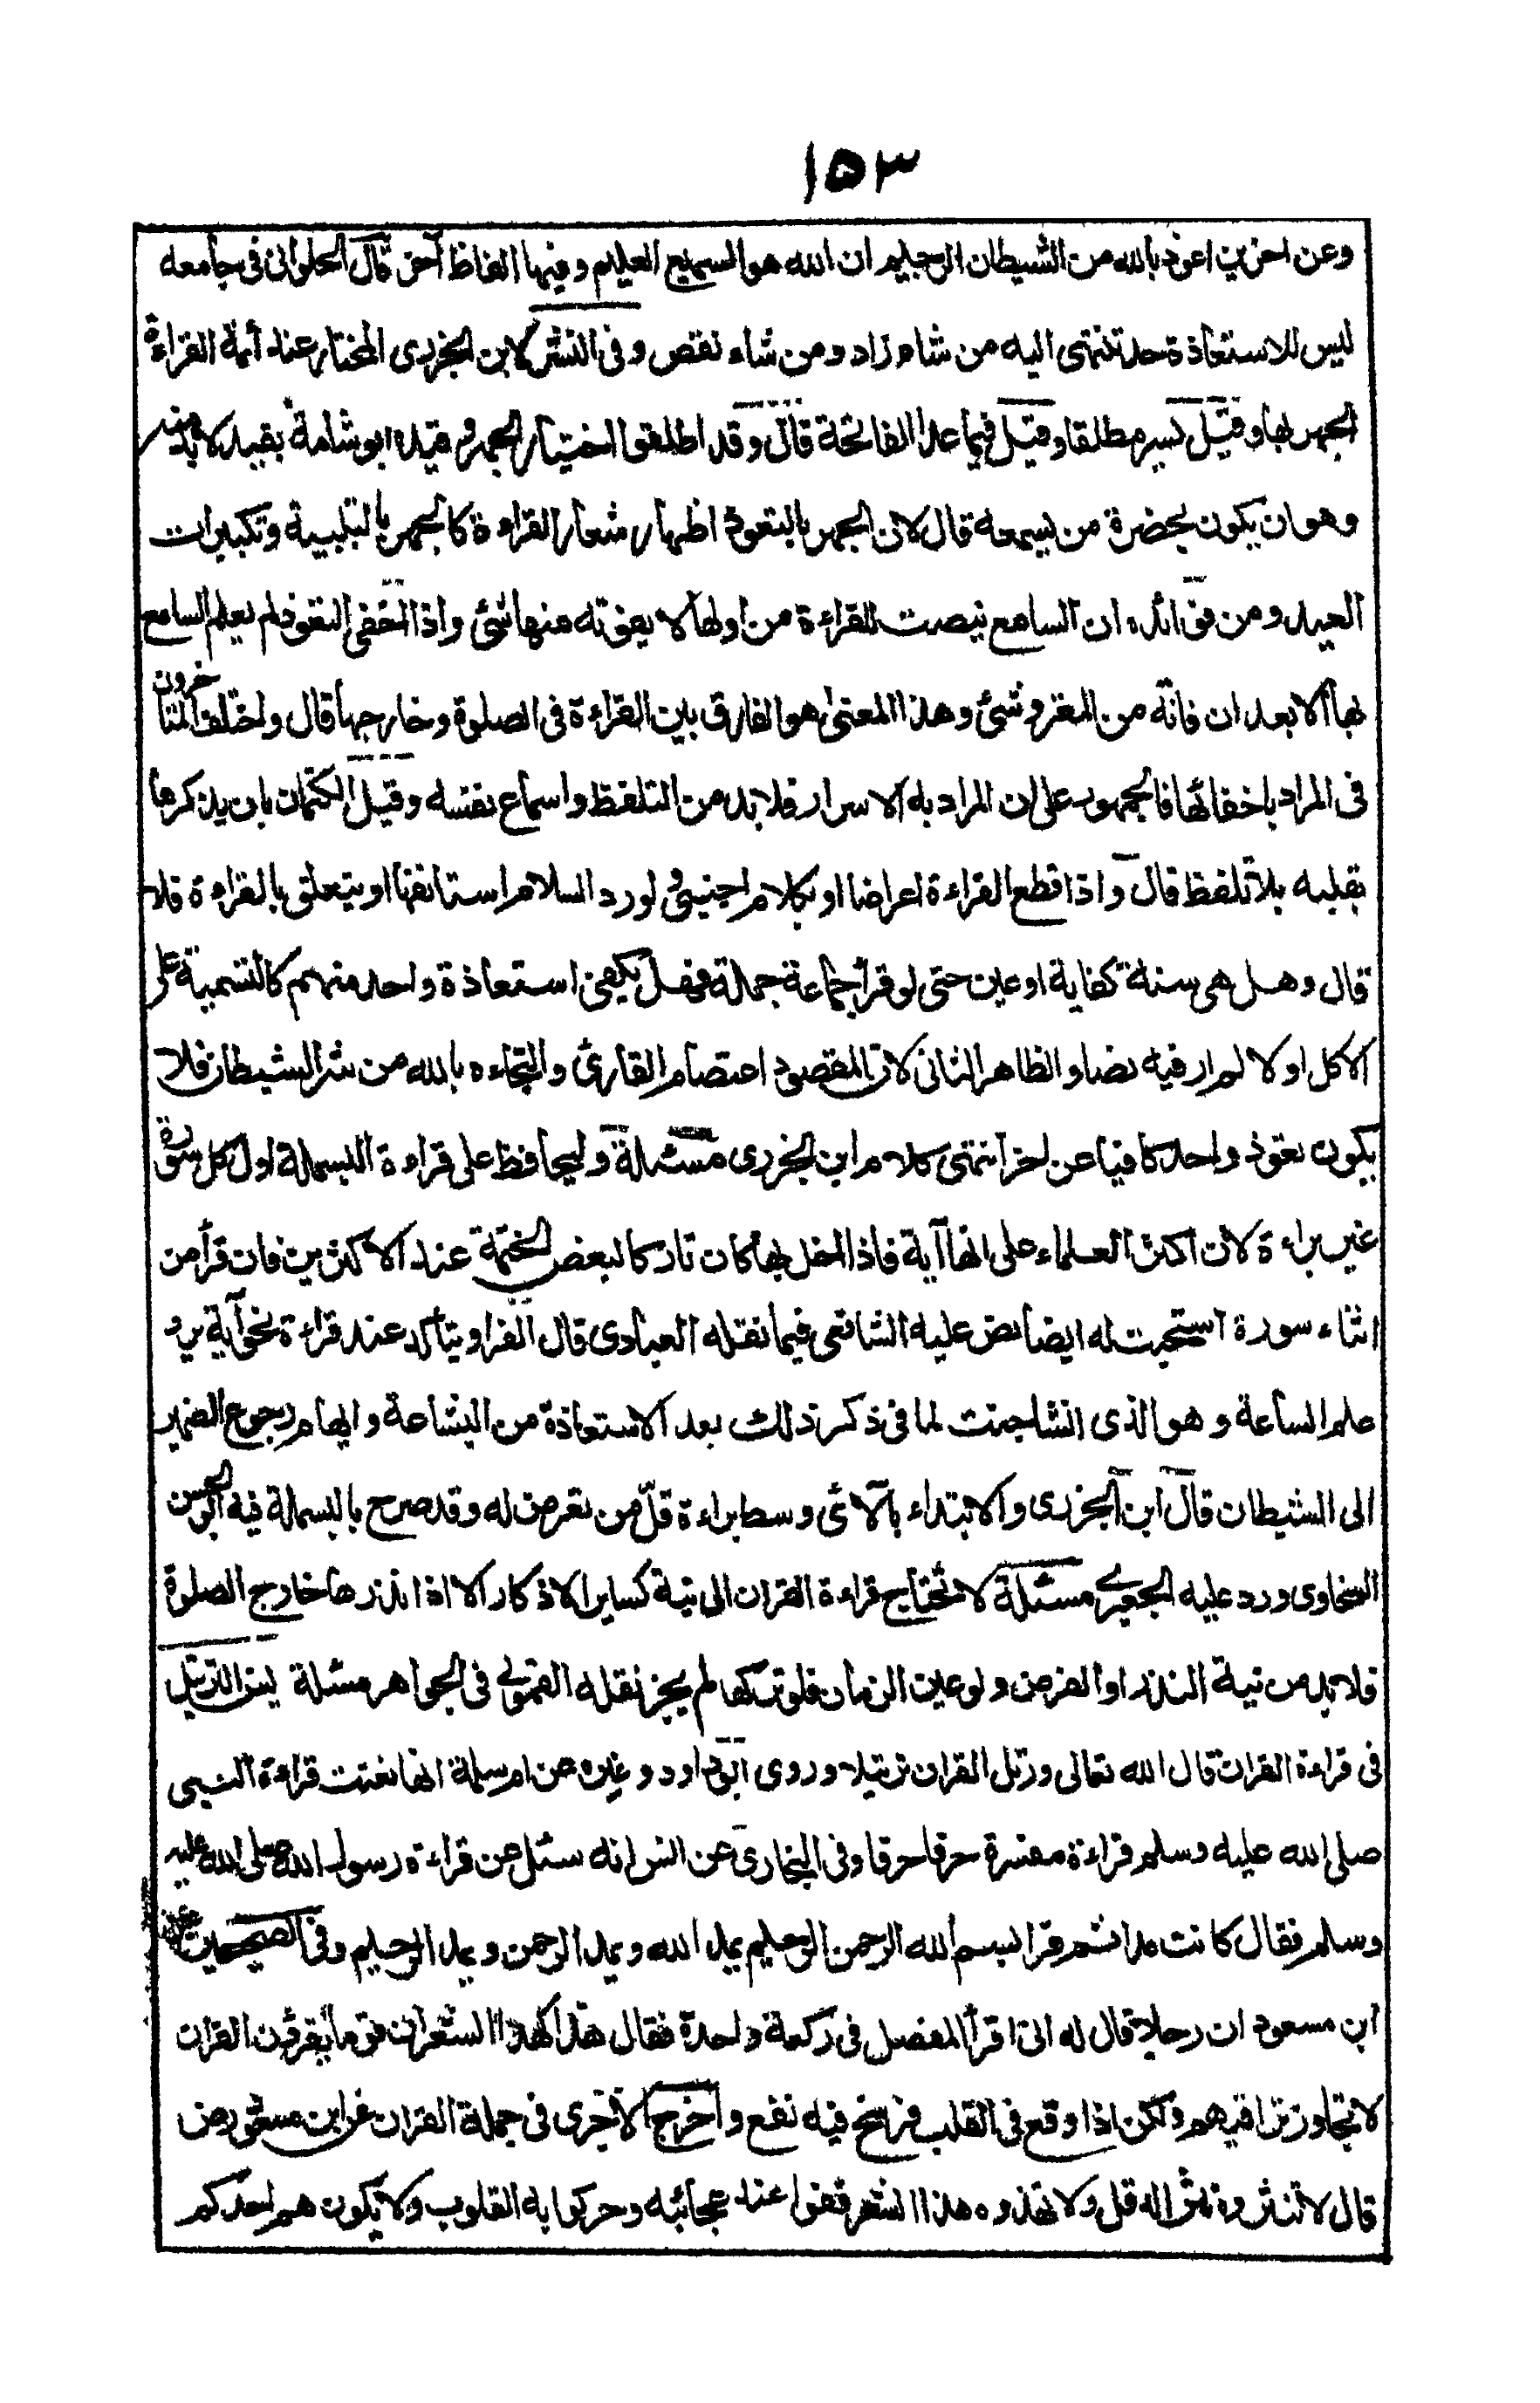 ١٥٣
وعن اخرين اعوذ بالله من الشيطان الرجيم ان الله هو السميع العليم وفيها الفاظ آخر قال الحلواني في جامعه
ليس للاستعاذة حد تنتهى اليه من شاء زاد ومن شاء نقص وفى النشر لابن الجزرى المختار عند أئمة القراءة
الجهر بها وقيل يسر مطلقا وقيل فيما عدا الفاتحة قال وقد اطلقوا اختيار الجهر وقيده ابوشامة بقيد لابد منه
وهو ان يكون بحضرة من يسمعه قال لان الجهر بالتعوذ اظهار شعار القراءة كالجهر بالتلبية وتكبيرات
العيد ومن فوائده ان السامع ينصت للقراءة من اولها لا يفوته منها شئ واذا اخفى التعوذ لم يعلم السامع
بها الا بعد ان فاته من المقروشئ وهذا المعنى هو الفارق بين القراءة فى الصلوة وخارجها قال واختلف المتأخرون
فى المراد باخفائها فالجمهور على ان المراد به الاسرار فلا بد من التلفظ واسماع نفسه وقيل الكتمان بان يذكرها
بقلبه بلا تلفظ قال واذا قطع القراءة اعراضا او بكلام اجنبى ولو رد السلام استانفها او يتعلق بالقراءة فلا
قال وهل هى سنة كفاية او عين حتى لو قرأ جماعة جملة فهل يكفى استعاذة واحد منهم كالتسمية على
الاكل او لا لم ار فيه نصا والظاهر الثانى لان المقصود اعتصام القارئ والتجاءه بالله من شر الشيطان فلا
يكون تعوذ واحد كافيا عن اخر انتهى كلام ابن الجزرى مسئلة وليحافظ على قراءة البسملة اول كل سورة
غير براءة لان اكثر العلماء على انها آية فاذا اخل بها كان تاركا لبعض الختمة عند الاكثرين فان قرأ من
اثناء سورة استحبت له ايضا نص عليه الشافعى فيما نقله العبادى قال الفراو يتأكد عند قراءة نحو آية يرد
علم الساعة وهو الذى انشا جنت لما فى ذكر ذلك بعد الاستعاذة من البشاعة وايهام رجوع الضمير
الى الشيطان قال ابن الجزرى والابتداء بالآى وسط براءة قلّ من تعرض له وقد صرح بالبسملة فيه ابوالحسن
السخاوى ورد عليه الجعبرى مسئلة لا تحتاج قراءة القران الى نية كساير الاذكار الا اذا نذرها خارج الصلوة
فلا بد من نية النذر او الفرض ولو عين الزمان فلو تركها لم يجز نقله القمولى فى الجواهر مسئلة يسن الترتيل
فى قراءة القران قال الله تعالى ورتل القران ترتيلا وروى ابوداود وغيره عن ام سلمة انها نعتت قراءة النبى
صلى الله عليه وسلم قراءة مفسرة حرفا حرفا وفى البخارى عن انس انه سئل عن قراءة رسول الله صلى الله عليه
وسلم فقال كانت مدا ثم قرا بسم الله الرحمن الرحيم يمد الله ويمد الرحمن ويمد الرحيم وفى الصحيحين عن
ابن مسعود ان رجلا قال له انى اقرأ المفصل فى ركعة واحدة فقال هذا كهذ الشعر ان قوما يقرؤن القران
لا يتجاوز تراقيهم ولكن اذا وقع فى القلب فرسخ فيه نفع واخرج الآجرى فى جملة القران عن ابن مسعود رض
قال لا تنثروه نثر الدقل ولا تهذوه هذا الشعر قفوا عند عجائبه وحركوا به القلوب ولا يكون هم احدكم